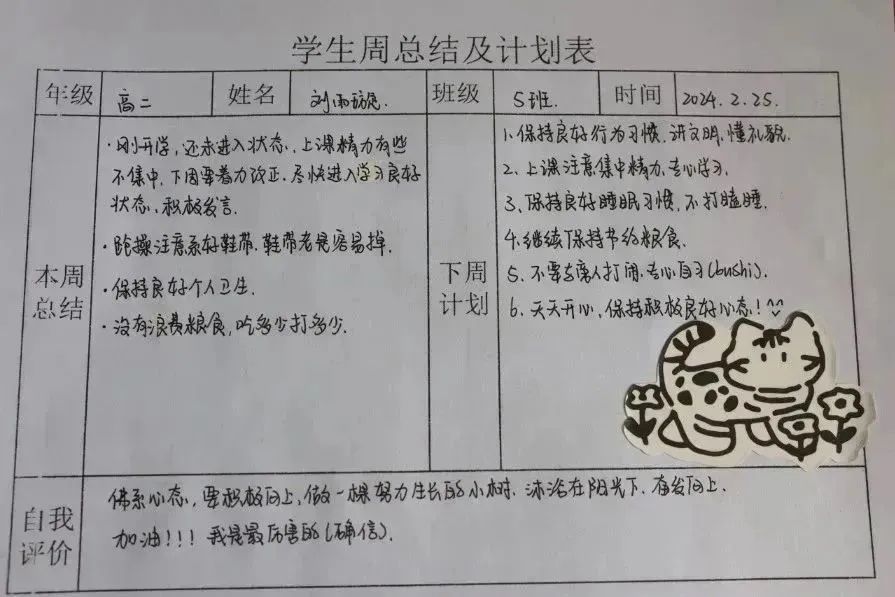 学生周总结及计划表
年级 高二 姓名 刘雨 班级 5班. 时间 2024.2.25.
本周总结
·刚开学,还未进入状态,上课精力有些
不集中,下周要着力改正.尽快进入学习良好
状态,积极发言.
·跑操注意系好鞋带,鞋带老是容易掉.
·保持良好个人卫生.
·没有浪费粮食,吃多少打多少.
下周计划
1.保持良好行为习惯,讲文明,懂礼貌.
2.上课注意集中精力,专心学习.
3.保持良好睡眠习惯,不打瞌睡.
4.继续保持节约粮食.
5.不要与旁人打闹,专心自习(bushi).
6.天天开心,保持积极良好心态!^^
自我评价
佛系心态,要积极向上,做一棵努力生长的小树.沐浴在阳光下.奋发向上.
加油!!!我是最厉害的(确信).